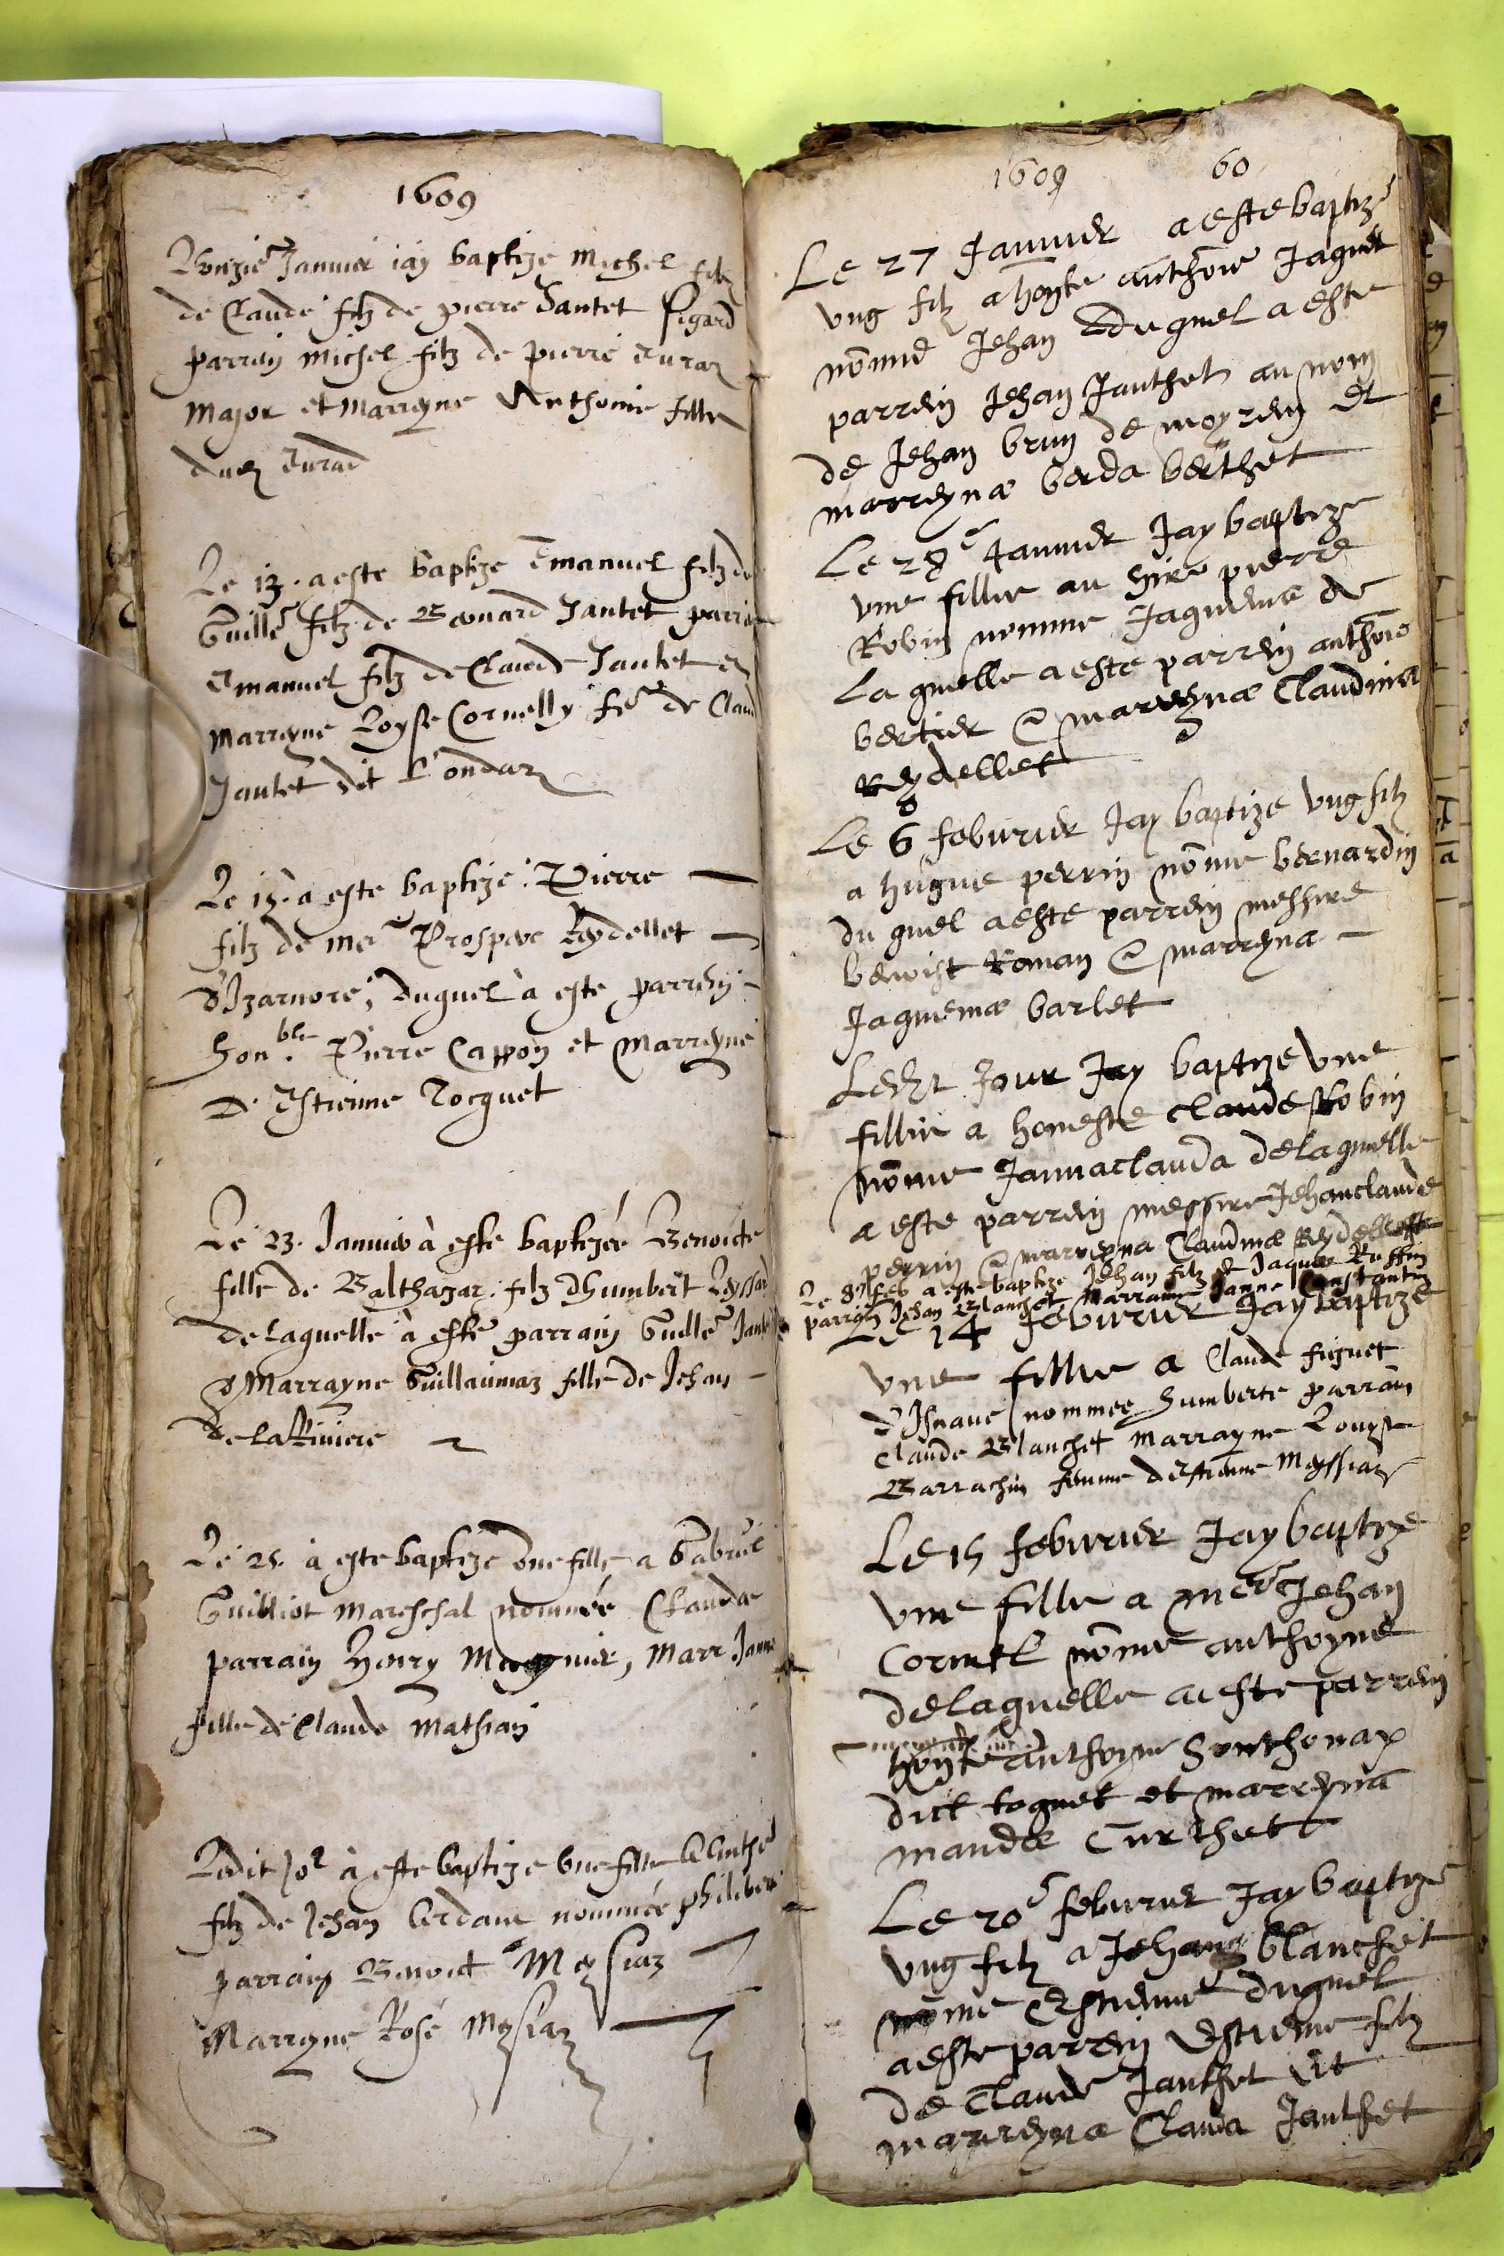 1609
Lonzie Janvier iay baptize Michel filz
de Claude filz de pierre Jantet
parrein Michel filz de pierre
Major et Marreyne Anthoine fille
Le 13. a este baptize Emanuel filz de
Guille filz de Bernard Jantet parrein
Emanuel filz de Claude Jantet et
Marreyne Loyse Cornelly fe de Claude
Jantet dit
Le 15. à este baptizé. Pierre
filz de me Prosper Reydellet
d'Izarnore, duquel à este parrein
hon.ble Pierre Cappon et Marreyne
D. Estienne Tocquet
Le 23. Janvier à este baptezée Benoicte
fille de Balthazar filz dhumbert
de laquelle à esté parrain Guille Jantet
& Marrayne Guillaumaz fille de Jehan
de la Riviere
Le 25. à este baptizé une fille a Gabriel
Guilliot Mareschal nommée Clauda
parrain Henry, Marr Janne
fille de Claude Mathieu
Ledit jor à este baptize une fille
filz de Jehan nommée philiberte
parrain Benoict Meysiaz
Marreyne Rose Meysiaz
1609 60
Le 27 Januier a este baptize
ung filz a honste anthoine Jaquet
nomme Jehan duquel a este
parrein Jehan Janthet au nom
de Jehan brun de moyren Et
marreyna berda berthet
Le 28e Januier Jay baptize
une fillie au Sire pierre
Robin nomme Jaquema de
la quelle a este parrein anthoine
bertier & marreyna Claudina
Reydellet
Le 6 feburier Jay baptize ung filz
a hugue perrin nomme bernardin
du quel a este parrein messire
benoist Roman & marreyna
Jaquema barlet
Ledit Jour Jay baptize une
fillie a honeste claude Robin
nomme Jannaclauda de laquelle
a este parrein messire Jehanclaude
perrin & marreyna Claudina Reydellet
Le 8 feb a este baptize Jehan filz de Jaques Ruffin
parrein Jehan Blanchet Marraine Janne Constantin
Le 14 feburier Jay baptize
une fillie a Claude
d'Isnaue nommee humberte parrain
Claude Blanchet Marrayne Louyse
Barrachin femme d'Estienne Meyssiaz
Le 15 feburier Jay baptize
une fillie a mere Jehan
Cornel nomme anthoyne
de laquelle a este parrein
honste anthoyne Sonthonax
dict toquet et marreyna
manda Curthet
Le 20e feburier Jay baptize
ung filz a Jehan blanchet
nomme Estienne duquel
a este parrein Estienne filz
de Claude Janthet Et
marreyna Clauda Janthet